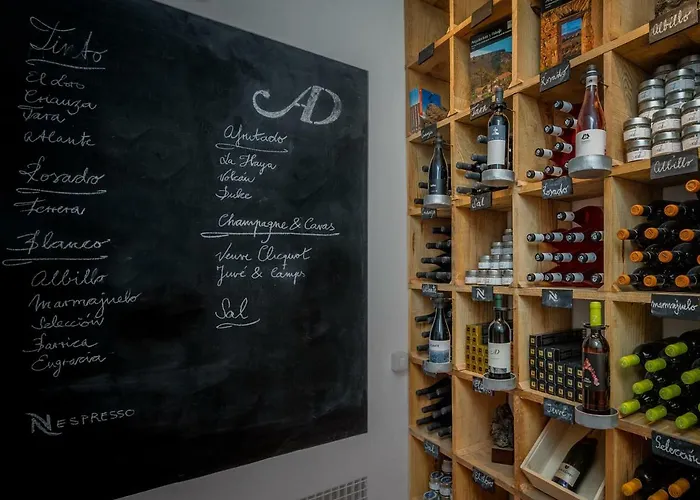 Tinto
El Loro
Crianza
Tara
Atlante
Rosado
Ferrera
Blanco
Albillo
Marmajuelo
Selección
Barrica
Engracia
NESPRESSO
AD
Afrutado
La Haya
Volcán
Dulce
Champagne & Cavas
Veuve Clicquot
Juvé & Camps
Sal
Albillo
Rosado
Sal
Rosado
Albillo
N
N
Marmajuelo
Juvé
Selección